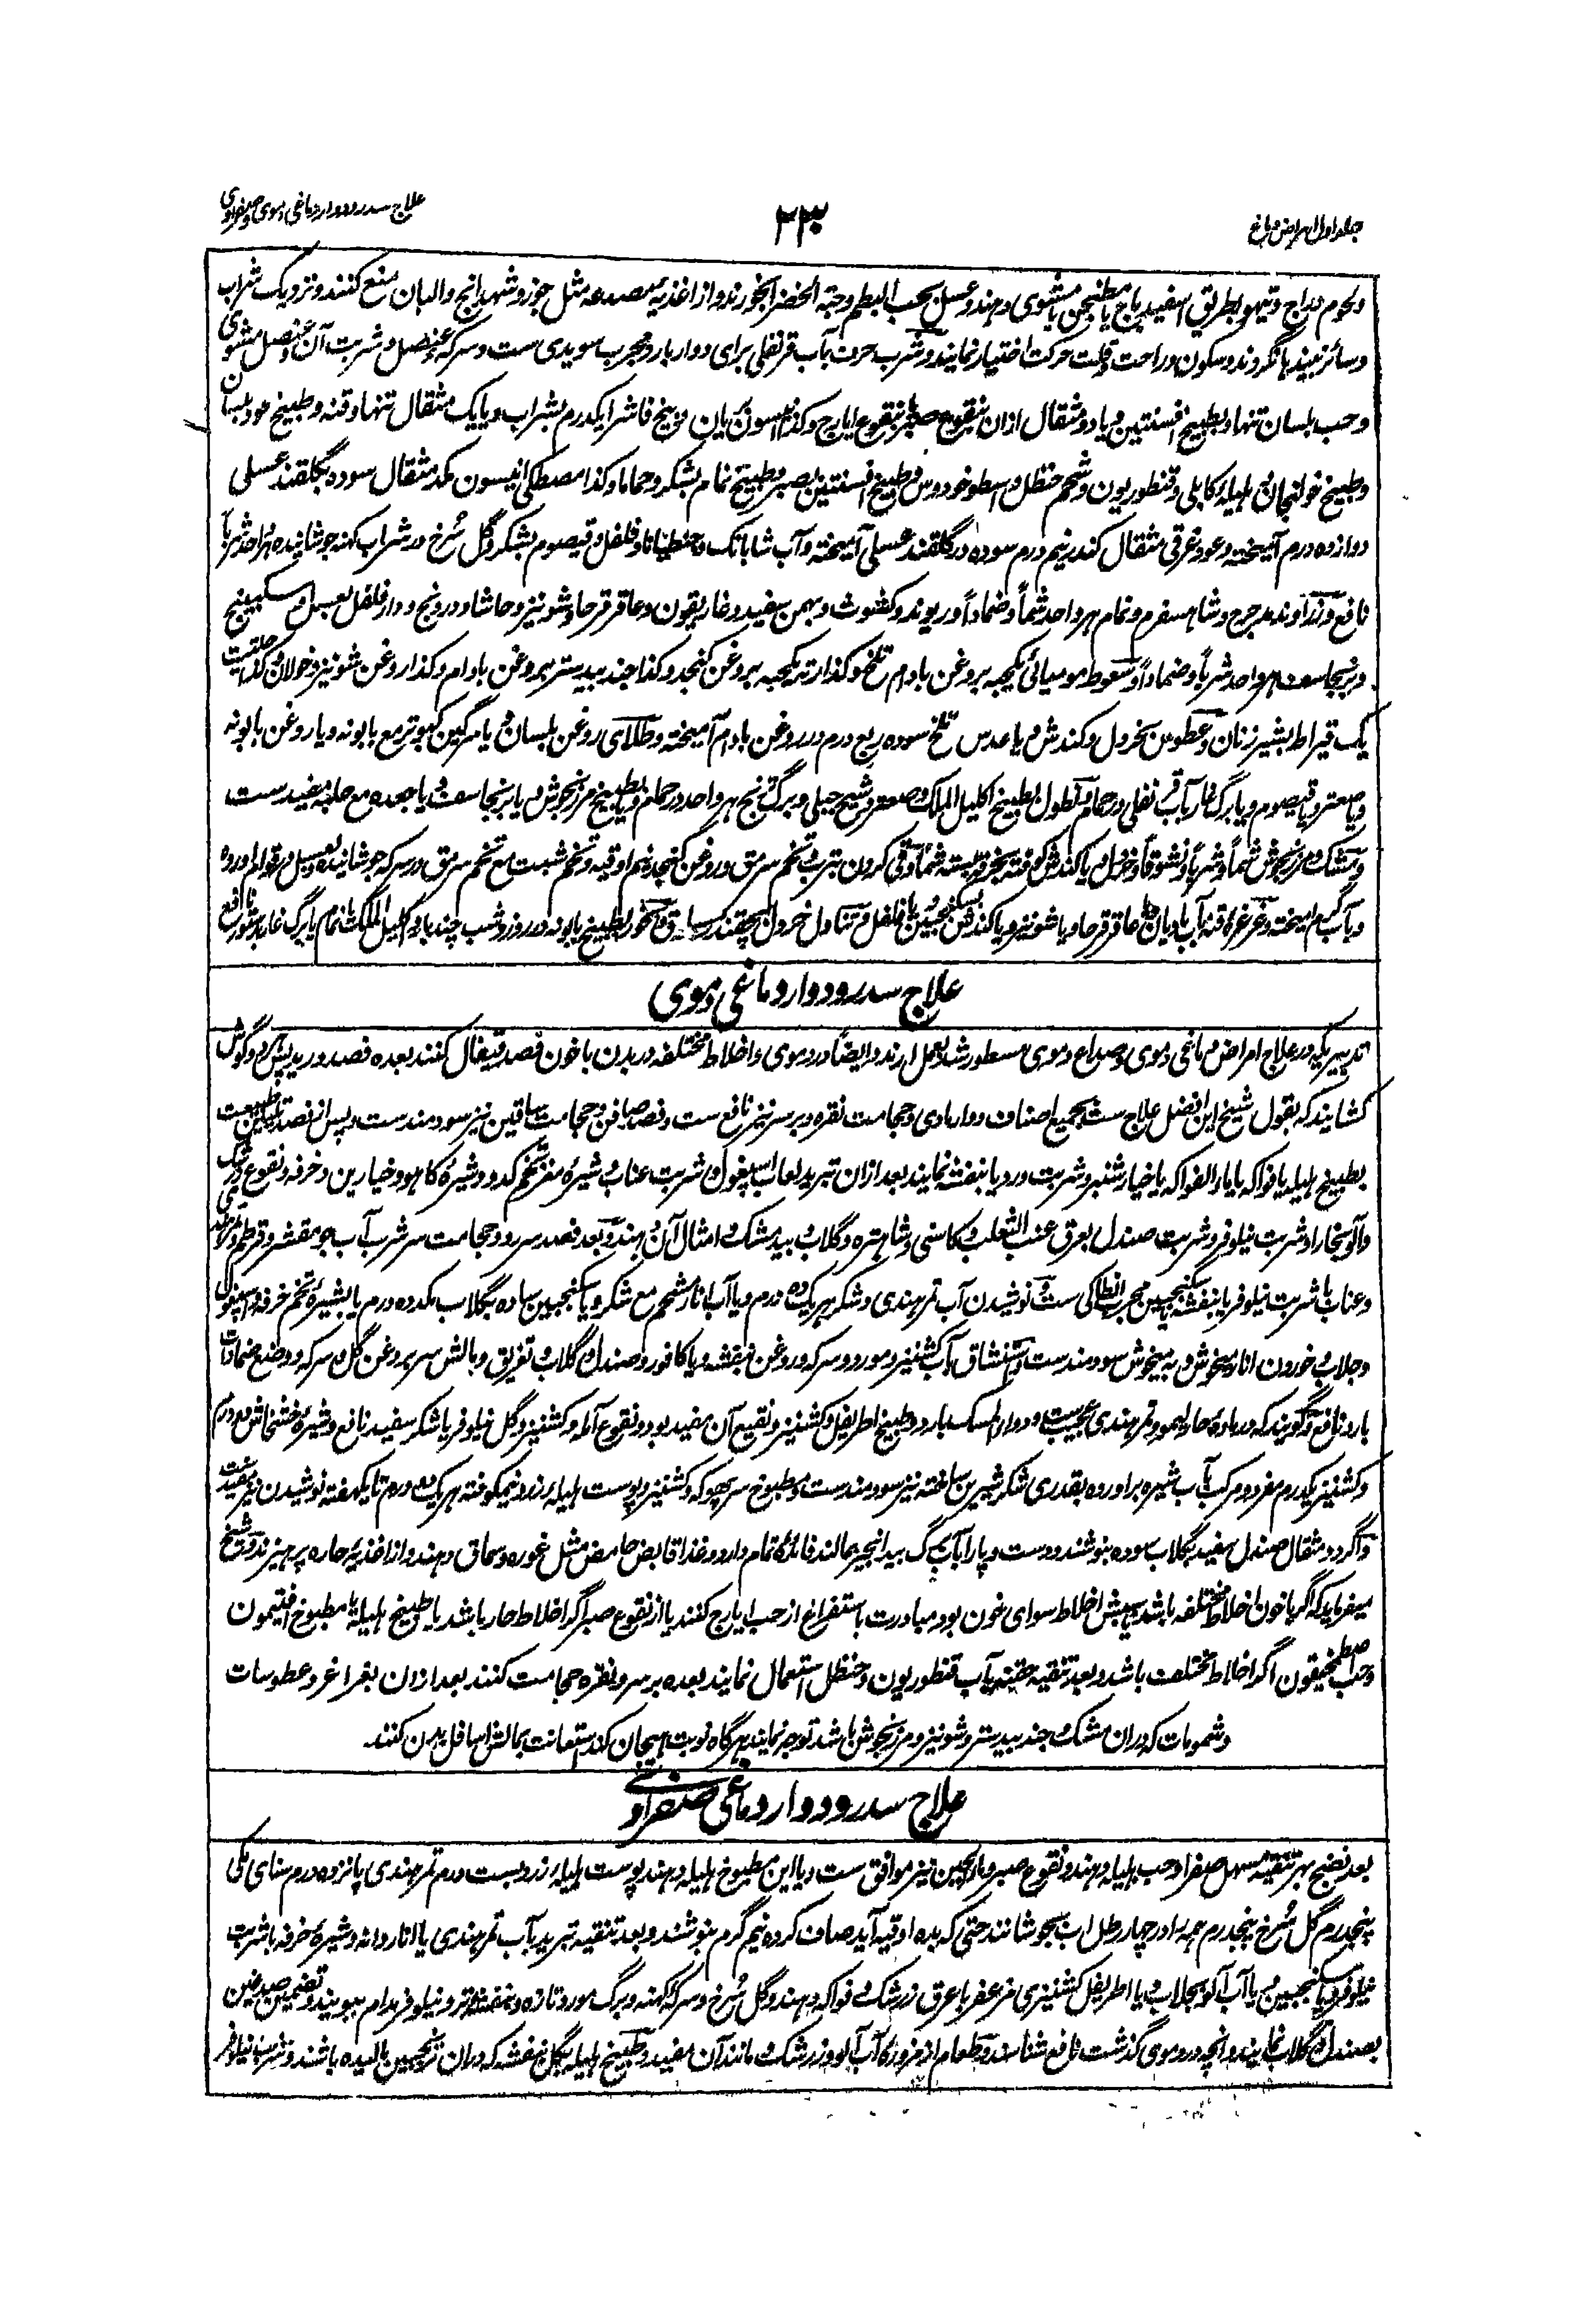 جلد اول امراض دماغ
۳۳۰
علاج سدر و دوار دماغی دموی و صفراوی
ولحوم دراج و تیهو بطریق اسفیدباج یا مطنجن یا مشوی دهند و عسل بحب البطم و حبة الخضرا بخورند و از اغذیه مصدعه مثل جوز و شهدانج و البان منع کنند و نزدیک شراب
وسائر نبیذ ها نگروند و سکون و راحت و قلت حرکت اختیار نمایند و شرب حرف بآب قرنفلی برای دوار بارد مجرب سویدی ست و سرکه عنصل و شربت آن و عنصل مشوی
وحب بلسان تنها و بطبیخ افسنتین و یا دو مثقال ازان بنقوع صبر یا بنقوع ایارج و کذا انیسون بریان و بیخ فاشرا یکدرم بشراب و یا یک مثقال تنها و قنه و طبیخ عود بلسان
وطبیخ خولنجان و هلیله کابلی و قنطوریون و شحم حنظل و اسطوخودوس و طبیخ افسنتین بصبر و طبیخ نمام بشکر و حماما و کذا مصطکی انیسون یکمثقال سوده بگلقند عسلی
دوازده درم آمیخته و عود غرقی مثقال کندر نیم درم سوده در گلقند عسلی آمیخته و آب شابانک و جنطیانا و فلفل و قیصوم بشکر و گل سرخ در شراب کهنه جوشانیده هر واحد شرباً
نافع و زراوند مدحرج و شاهسفرم و نمام هر واحد شماً و ضماداً و ریوند و کشوث و بهمن سفید و غاریقون و عاقرقرحا و شونیز و حاشا و درونج و دارفلفل بعسل و سکبینج
وبرنجاسف هر واحد شرباً و ضماداً و سعوط مومیائی یکحبه بروغن بادام تلخ و کذا رته یکحبه بروغن کنجد و کذا جند بیدستر بروغن بادام و کذا روغن شونیز و خولان و کذا حلتیت
یک قیراط بشیر زنان و عطوس بخردل و کندش و یا عدس تلخ سوده ربع درم در روغن بادام آمیخته و طلای روغن بلسان و یا سرگین کبوتر مع بابونه و یا روغن بابونه
ویا صعتر و قیصوم و یا برگ غار بآب قرنفلی در حمام و نطول بطبیخ اکلیل الملک و صعتر و شیح جبلی و برگ ترنج هر واحد در حمام و یا بطبیخ مرزنجوش و یا برنجاسف و یا جعده مع حلبه مفید ست
ومشک و مرزنجوش شماً و شرباً و نشوقاً و خردل یا کندش کوفته بخرقه بسته شماً و قی کردن بترب و تخم سرمق و روغن کنجد نیم اوقیه و تخم شبت مع تخم سرمق در سرکه جوشانیده بعسل در قوام آورده
ویا آب گرم آمیخته و غرغره قنه بآب بادیان و عاقرقرحا و یا شونیز و یا کندش بسکنجبین یا فلفل و تناول خردل بچقندر سلق و بخور بطبیخ بابونه در روز و شب چند بار و اکلیل الملک یا نمام یا برگ غار بدستور نافع
علاج سدر و دوار دماغی دموی
تدبیریکه در علاج امراض دماغی دموی و صداع دموی مسطور شد بعمل آرند و ایضاً در دموی و اخلاط مختلفه در بدن با خون فصد قیفال کنند بعده فصد ورید پس هر دو گوش
کشایند که بقول شیخ این افضل علاج ست بجمیع اصناف دوار مادی و حجامت نقره و بر سر نیز نافع ست و فصد صافن و حجامت ساقین نیز سودمند ست و پس از فصد تلیین طبیعت
بطبیخ هلیله یا فواکه یا ماء الفواکه یا خیارشنبر و شربت ورد یا بنفشه نمایند بعد ازان تبرید بلعاب اسپغول و شربت عناب و شیره مغز تخم کدو و شیره کاهو و خیارین و خرفه و نقوع زرشک
وآلو بخارا و شربت نیلوفر و شربت صندل بعرق عنب الثعلب و کاسنی و شاهتره و گلاب و بید مشک و امثال آن دهند و بعد فصد سررو و حجامت سر شرب آب جو مقشر و قرطم و تمرهندی
وعناب با شربت نیلوفر یا بنفشه یا سکنجبین مجرب انطاکی ست و نوشیدن آب تمر هندی و شکر هر یک ده درم و یا آب انار مع شحم مع شکر و یا سکنجبین ساده بگلاب هر یک ده درم یا بشیره تخم خرفه و اسپغول
وجلاب و خوردن انار میخوش و به میخوش سودمند ست و استنشاق بآب کشنیز و مورد و سرکه و روغن بنفشه و یا کافور و صندل و گلاب و تغریق و مالش سر بروغن گل و سرکه و وضع ضمادات
بارد نافع و گویند که در ماده حار لیمو و تمر هندی عجیب ست و دواء المسک بارد و طبیخ اطریفل و کشنیز و نقیع آن مفید بود و نقوع آمله و کشنیز و گل نیلوفر با شکر سفید نافع و شیره خشخاش دو درم
وکشنیز یکدرم مفرد و مرکب بآب شیره برآورده بقدری شکر شیرین ساخته نیز سودمند ست و مطبوخ سرپهوکه و کشنیز و پوست هلیله زرد نیمکوفته هر یک دو درم تا یکهفته نوشیدن نیز مفید ست
واگر دو مثقال صندل سفید بگلاب سوده بنوشند و دست و پا را بآب برگ بید انجیر بمالند فائده تمام دارد و غذا قابض حامض مثل غوره و سماق دهند و از اغذیه حاره پرهیزند و شیخ
میفرماید که اگر با خون اخلاط مختلفه باشد یا بیش اخلاط سوای خون بود مبادرت باستفراغ از حب ایارج کنند یا از نقوع صبر اگر اخلاط حار باشد یا طبیخ هلیله یا مطبوخ افتیمون
وحب اصطمخیقون اگر اخلاط مختلف باشد و بعد تنقیه حقنه بآب قنطوریون و حنظل استعمال نمایند بعده بر سر و نقره حجامت کنند بعد ازان بغراغر و عطوسات
وشمومات که دران مشک و جند بیدستر و شونیز و مرزنجوش باشد توجه نمایند هرگاه نوبت هیجان کند استعانت بمالش اسافل بدن کنند
علاج سدر و دوار دماغی صفراوی
بعد نضج بهر تنقیه مسهل صفرا و حب هلیله دهند و نقوع صبر و ماء الجبن نیز موافق ست و یا این مطبوخ هلیله دهند پوست هلیله زرد بست درم تمر هندی پانزده درم سنای مکی
پنجدرم گل سرخ پنجدرم همه را در چهار رطل آب بجوشانند حتی که بده اوقیه آید صاف کرده نیم گرم بنوشند و بعد تنقیه تبرید بآب تمر هندی یا انار دانه و شیره خرفه با شربت
نیلوفر یا سکنجبین و یا آب آلو بجلاب و یا اطریفل کشنیزی مزعفر با عرق زرشک و فواکه دهند و گل سرخ و سرکه کهنه و برگ مورد تازه و بنفشه تر و نیلوفر مدام ببویند و تضمید صدغین
بصندل و گلاب نمایند و آنچه در دموی گذشت نافع شناسند و طعام از مزوره آب آلو و زرشک و مانند آن مفید و طبیخ هلیله بگل بنفشه که دران ترنجبین مالیده باشند و شربت نیلوفر